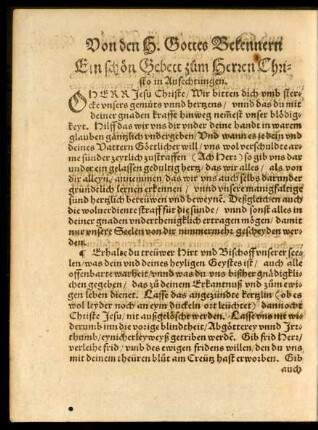 Von den H. Gottes Bekennern
Ein schön Gebett zům Herren Chri-
sto in Anfechtungen.
O HERR Jesu Christe/ Wir bitten dich vmb ster-
cke vnsers gemüts vnnd hertzens/ vnnd das du mit
deiner gnaden krafft hinweg nemest vnser blödig-
keyt. Hilff das wir vns dir vnder deine hand in warem
glauben gäntzlich vndergeben. Vnd wann es je dein vnd
deines Vattern Göttlicher will/ vns wol verschuldte ar-
me sünder zeytlich zůstraffen (Ach Herr) so gib vns dar
under ein gelassen gedultig hertz/ das wir alles/ als von
dir alleyn/ annemen/ das wir vns auch selbs darunder
gründtlich lernen erkennen/ vnnd vnsere manigfaltige
sünd hertzlich bereüwen vnd beweynē. Deßgleichen auch
die wolverdiente straff für die sünde/ vnnd sonst alles in
deiner gnaden vnderthenigklich ertragen mögen/ damit
nur vnsere Seelen von dir nimmermehr gescheyden wer-
den.
¶ Erhalte du treüwer Hirt vnd Bischoff vnserer see-
len/ was dein vnd deines heyligen Geystes ist/ auch alle
offenbarte warheit/ vnnd was du vns bißher gnädigkli-
chen gegeben/ das zů deinem Erkantnuß vnd zům ewi-
gen leben dienet. Lasse das angezündte kertzlin (ob es
wol leyder noch an eym dückeln ort leüchtet) dannocht
Christe Jesu/ nit außgelöscht werden. Lasse vns nit wi-
derumb inn die vorige blindtheit/ Abgötterey vnnd Irr-
thumb/ eynicherley weyß getriben werdē. Gib frid Herr/
verleihe frid/ vmb des ewigen fridens willen/ den du vns
mit deinem theüren blůt am Creütz hast erworben. Gib
auch